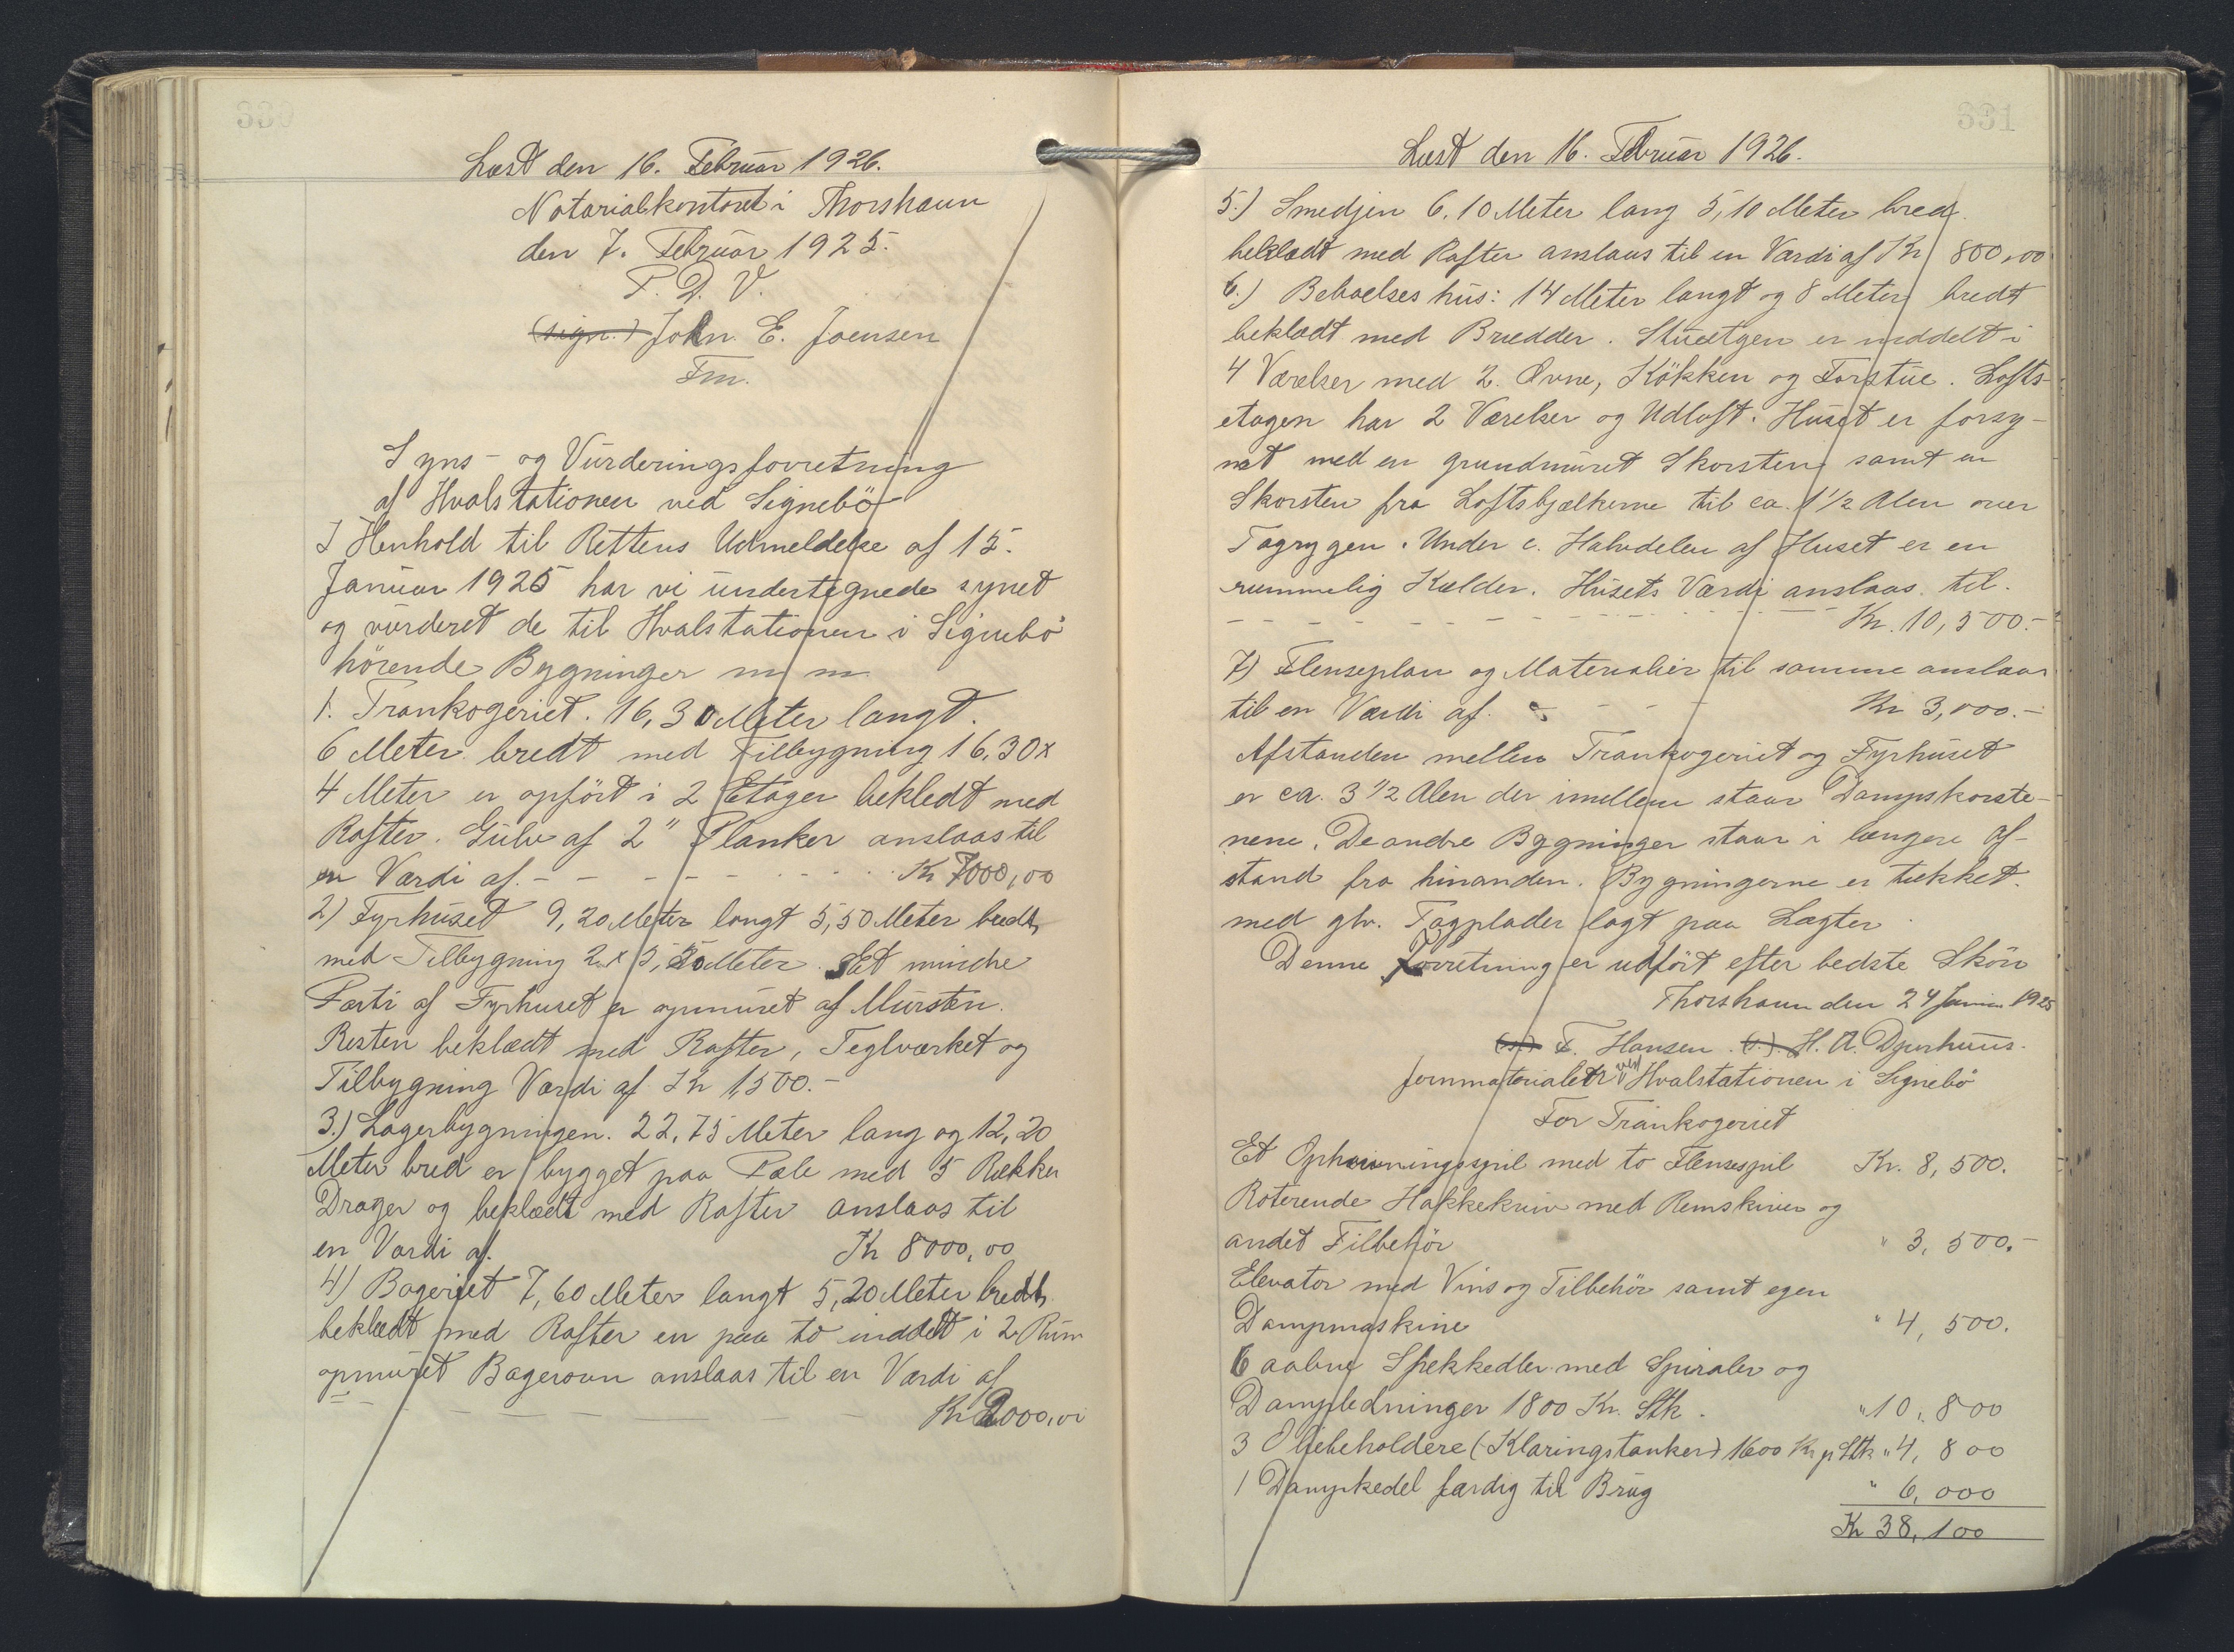 330
Læst den 16. Februar 1926.
Notarialkontoret i Thorshavn
den 7. Februar 1925.
P. D. V.
(sign.) John E. Joensen
Fm.
Syns- og Vurderingsforretning
af Hvalstationen ved Signebö
I Henhold til Rettens Udmeldelse af 15.
Januar 1925 har vi undertegnede synet
og vurderet de til Hvalstationen i Signebö
hörende Bygninger m m
1. Trankogeriet. 16,30 Meter langt.
6 Meter bredt med Tilbygning 16,30 x
4 Meter er opfört i 2 Etager bekledt med
Rafter. Gulv af 2" Planker anslaas til
en Værdi af. - - - - - - - Kr 7000,00
2) Fyrhuset 9,20 Meter langt 5,50 Meter bredt,
med Tilbygning 2 x 5,50 Meter. Et mindre
Parti af Fyrhuset er opmuret af Mursten.
Resten beklædt med Rafter, Teglværket og
Tilbygning Værdi af Kr 1,500.-
3.) Lagerbygningen. 22,75 Meter lang og 12,20
Meter bred er bygget paa Pæle med 5 Rækker
Drager og beklædt med Rafter anslaas til
en Værdi af. Kr 8000,00
4) Bageriet 7,60 Meter langt 5,20 Meter bredt,
beklædt med Rafter en paa to inddelt i 2 Rum
opmuret Bagerovn anslaas til en Værdi af
- - - - - Kr 2000,00
331
Læst den 16. Februar 1926.
5.) Smedjen 6.10 Meter lang 5,10 Meter bred.
beklædt med Rafter anslaas til en Værdi af Kr 800,00
6.) Beboelseshus: 14 Meter langt og 8 Meter bredt
beklædt med Brædder. Stueetgen er inddelt i
4 Værelser med 2. Ovne, Kökken og Forstue. Lofts-
etagen har 2 Værelser og Udloft. Huset er forsy-
net med en grundmuret Skorsten samt en
Skorsten fra Loftsbjælkerne til ca. 1 1/2 Alen over
Tagryggen. Under c. Halvdelen af Huset er en
rummelig Kælder. Husets Værdi anslaas til.
- - - - - - - - - - Kr. 10,500.-
7) Flenseplan og Materialier til samme anslaas
til en Værdi af. - - - Kr 3,000.-
Afstanden mellem Trankogeriet og Fyrhuset
er ca. 3 1/2 Alen der imellem staar Dampskorste-
nene. De andre Bygninger staar i længere Af-
stand fra hinanden. Bygningerne er tækket
med glv. Tagplader lagt paa Lægter.
Denne Forretning er udfört efter bedste Skön
Thorshavn den 24 Januar 1925
(s.) F. Hansen. (s.). H. A. Djurhuus.
Jernmaterialet ved Hvalstationen i Signebö
For Trankogeriet
Et Ophivningsspil med to Flensespil Kr. 8,500.
Roterende Hakkekniv med Remskiver og
andet Tilbehör " 3,500.-
Elevator med Vins og Tilbehör samt egen
Dampmaskine " 4,500.
6 aabne Spekkedler med Spiraler og
Dampledninger 1800 Kr. Stk. " 10,800
3 Oliebeholdere (Klaringstanker) 1600 Kr p Stk " 4,800
1 Dampkedel færdig til Brug " 6,000
Kr 38,100